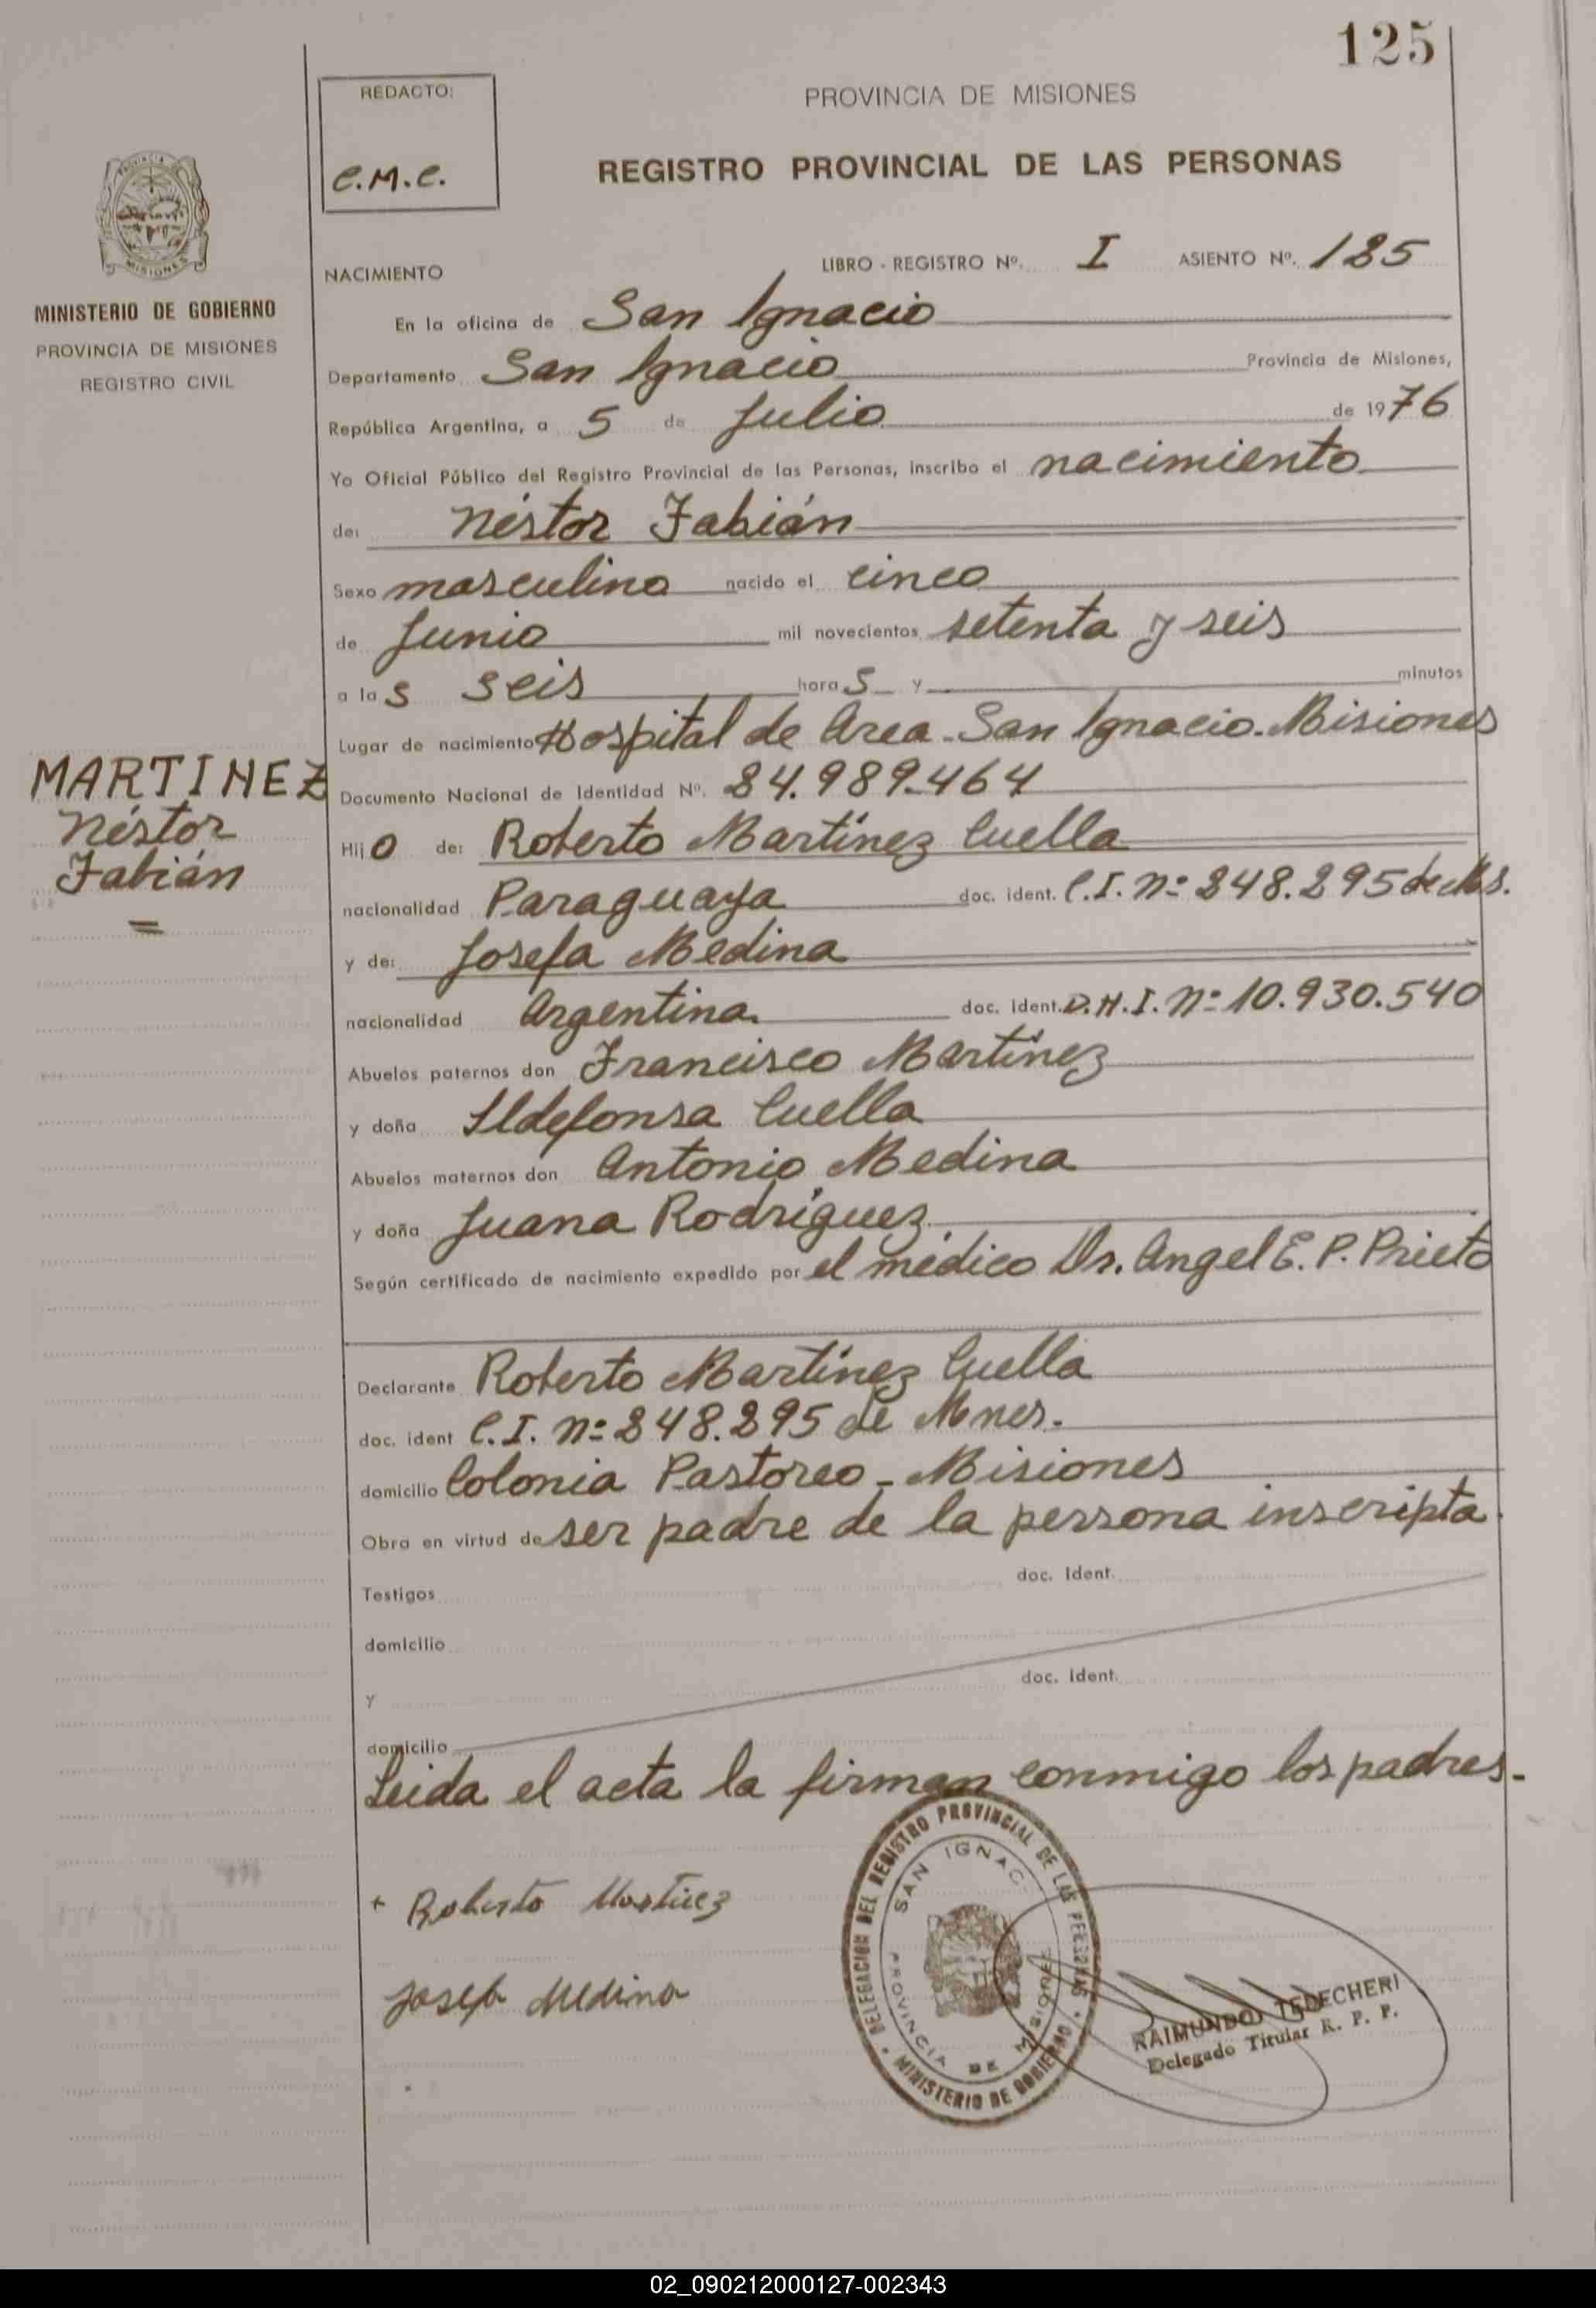 125
REDACTO:
C.M.C.
PROVINCIA DE MISIONES
REGISTRO PROVINCIAL DE LAS PERSONAS
PROVINCIA
MISIONES
MINISTERIO DE GOBIERNO
PROVINCIA DE MISIONES
REGISTRO CIVIL
NACIMIENTO LIBRO - REGISTRO Nº. I ASIENTO Nº. 125
En la oficina de San Ignacio
Departamento San Ignacio Provincia de Misiones,
República Argentina, a 5 de Julio de 1976
Yo Oficial Público del Registro Provincial de las Personas, inscribo el nacimiento
de: Néstor Fabián
Sexo masculino nacido el cinco
de Junio mil novecientos setenta y seis
a las seis horas y minutos
Lugar de nacimiento Hospital de Area - San Ignacio - Misiones
MARTINEZ
Néstor
Fabián
Documento Nacional de Identidad Nº. 24.989.464
Hijo de: Roberto Martínez Cuella
nacionalidad Paraguaya doc. ident. C.I. Nº 248.295 de Ms.
y de: Josefa Medina
nacionalidad Argentina. doc. ident. D.N.I. Nº 10.930.540
Abuelos paternos don Francisco Martínez
y doña Ildefonsa Cuella
Abuelos maternos don Antonio Medina
y doña Juana Rodríguez
Según certificado de nacimiento expedido por el médico Dr. Angel E. P. Prieto
Declarante Roberto Martínez Cuella
doc. ident C.I. Nº 248.295 de Mnes.
domicilio Colonia Pastoreo - Misiones
Obra en virtud de ser padre de la persona inscripta.
Testigos doc. ident.
domicilio
y doc. ident.
domicilio
Leida el acta la firman conmigo los padres.-
+ Roberto Martinez
Josefa Medina
DELEGACION DEL REGISTRO PROVINCIAL DE LAS PERSONAS
SAN IGNACIO
PROVINCIA DE MISIONES
MINISTERIO DE GOBIERNO
RAIMUNDO TEDECHERI
Delegado Titular R. P. P.
02_090212000127-002343